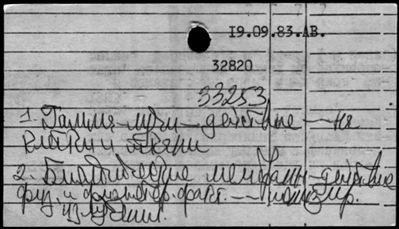 19.09.83.АВ.
32820
33253
1. Гамма-лучи — действие — на
клетки и ткани
2. Биологические мембраны — действие
физ. и физ.-хим. факт. — ионизир.
излучений.